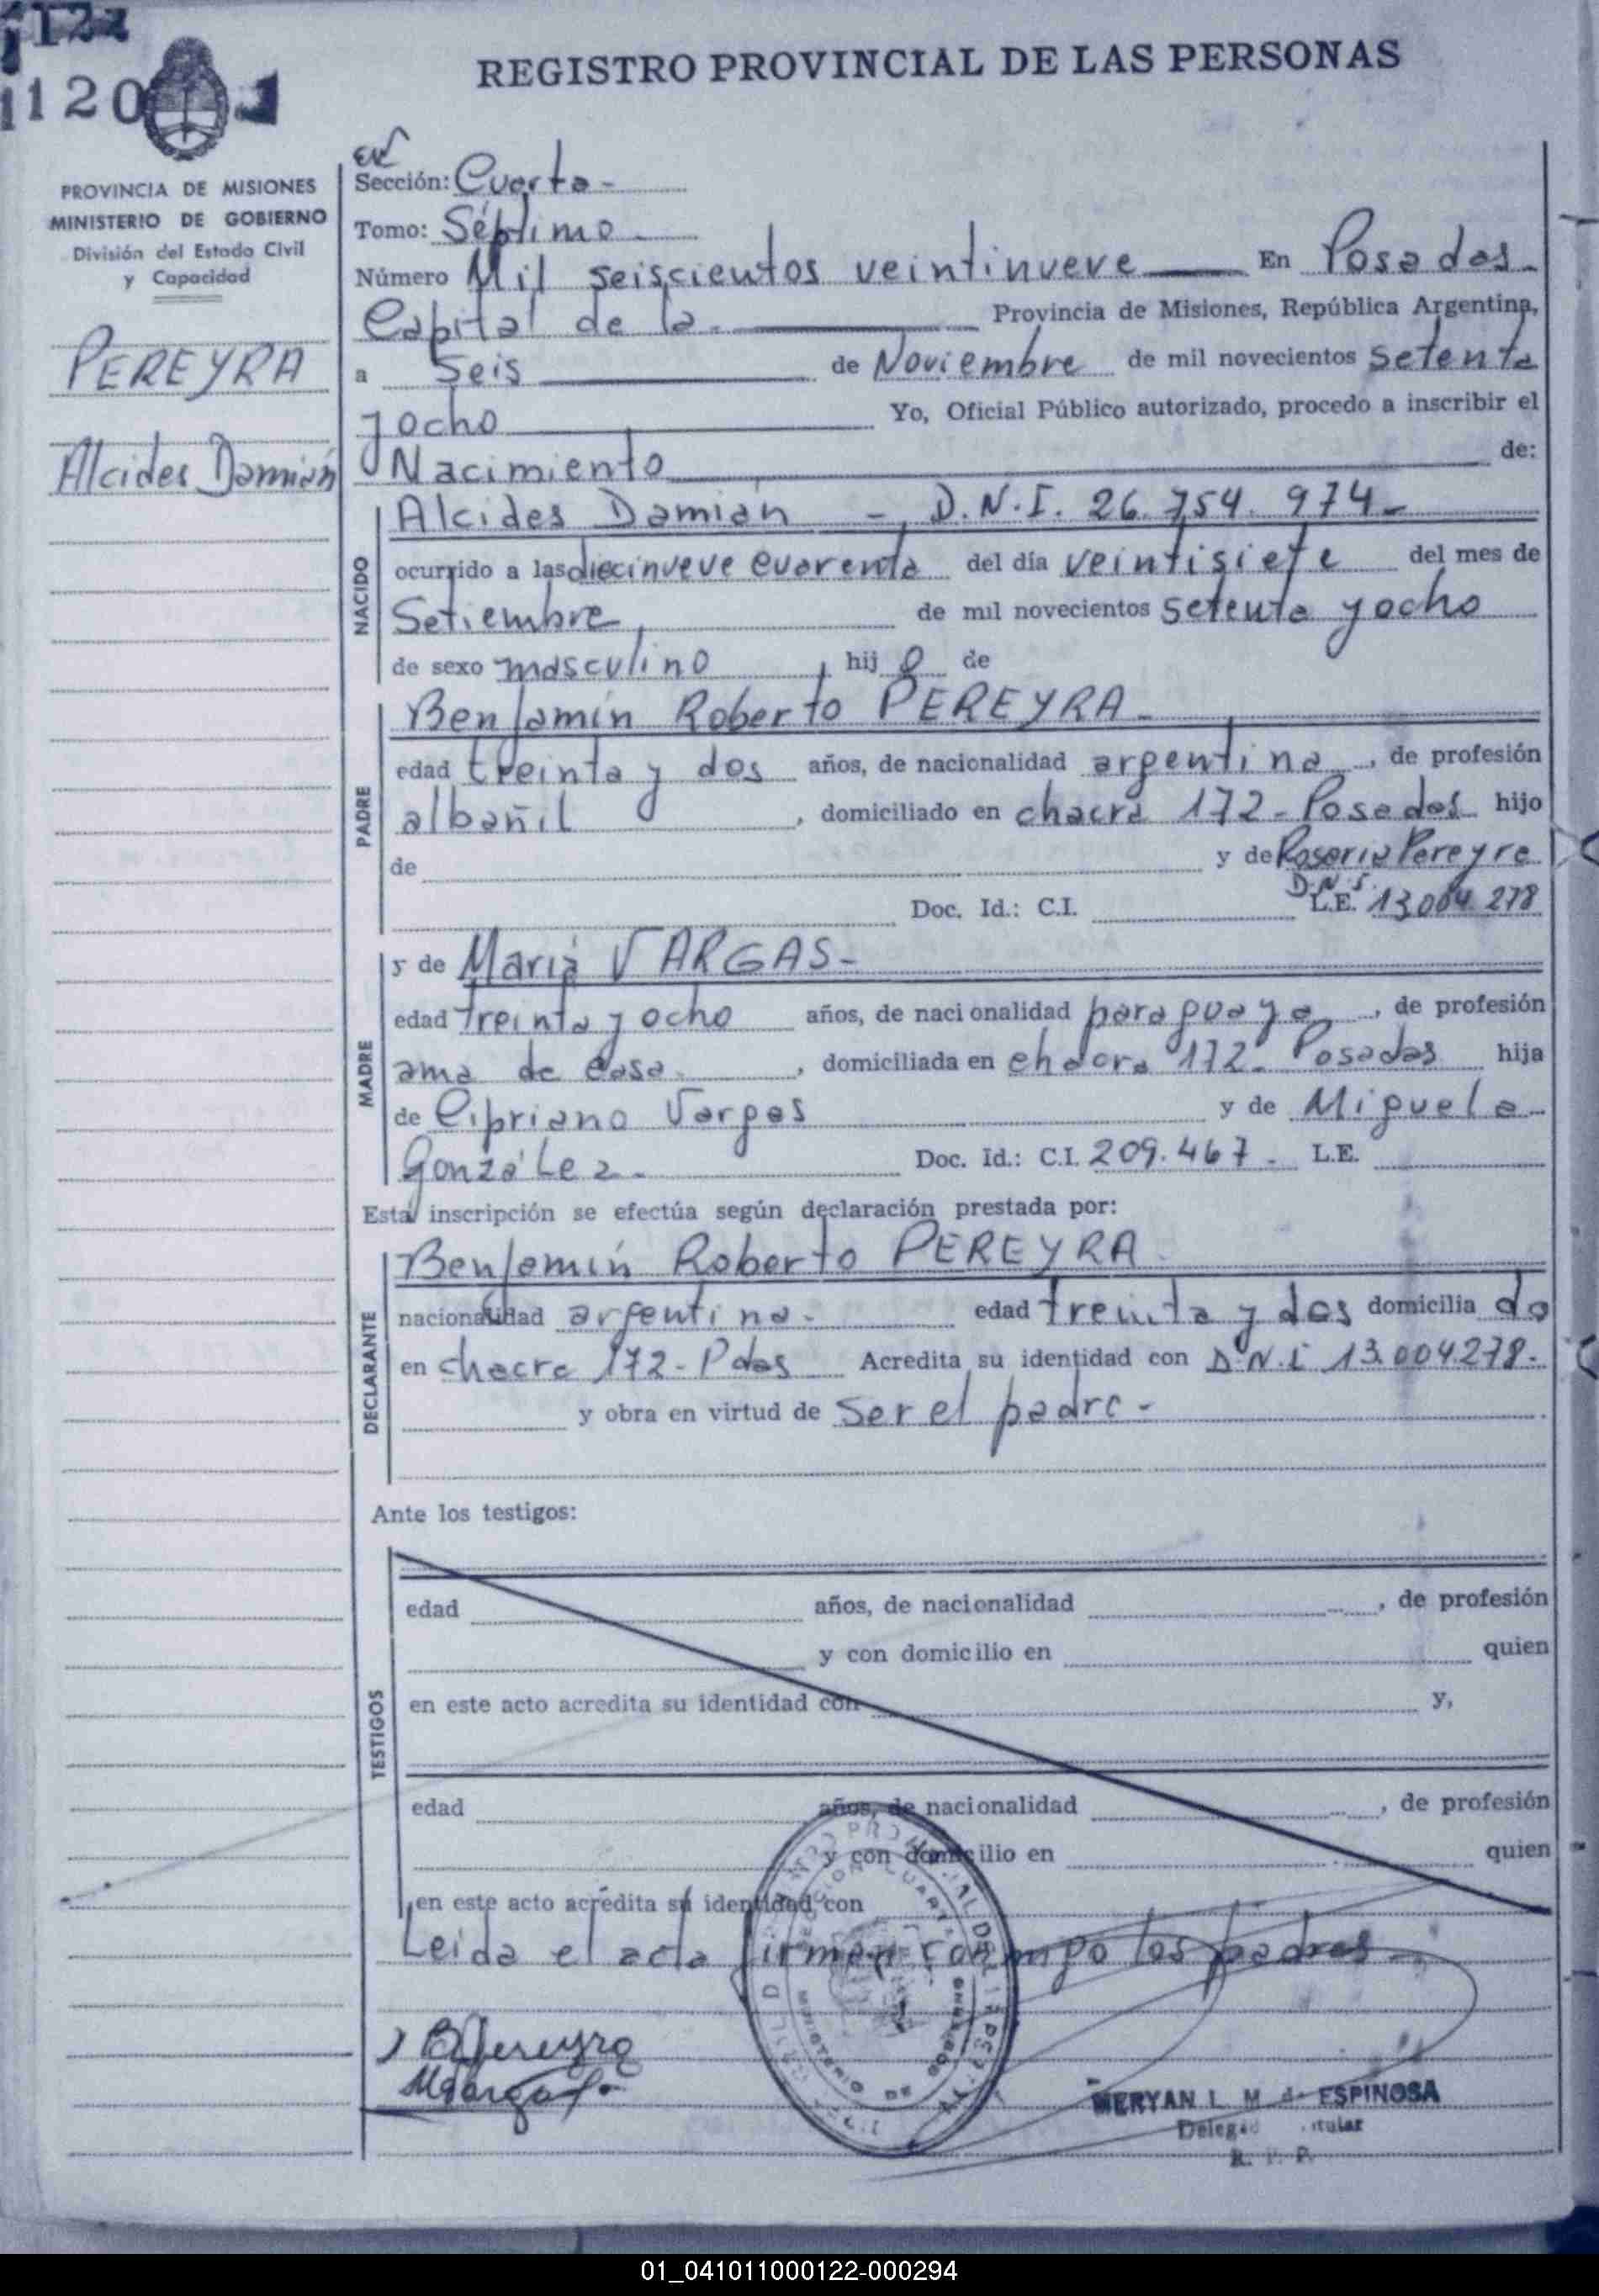 1122
1120
REGISTRO PROVINCIAL DE LAS PERSONAS
PROVINCIA DE MISIONES
MINISTERIO DE GOBIERNO
División del Estado Civil
y Capacidad
PEREYRA
Alcides Damián
Sección: Cuarta -
Tomo: Séptimo
Número Mil seiscientos veintinueve En Posadas
Capital de la Provincia de Misiones, República Argentina,
a Seis de Noviembre de mil novecientos setenta
y ocho Yo, Oficial Público autorizado, procedo a inscribir el
Nacimiento de:
NACIDO
Alcides Damián - D.N.I. 26.754.974-
ocurrido a las diecinueve cuarenta del día veintisiete del mes de
Setiembre, de mil novecientos setenta y ocho
de sexo masculino, hijo de
PADRE
Benjamín Roberto PEREYRA-
edad treinta y dos años, de nacionalidad argentina, de profesión
albañil, domiciliado en chacra 172-Posadas hijo
de y de Rosaria Pereyra
Doc. Id.: C.I. D.N.I. L.E. 13.004.278
MADRE
y de María VARGAS-
edad treinta y ocho años, de nacionalidad paraguaya, de profesión
ama de casa, domiciliada en chacra 172- Posadas hija
de Cipriano Vargas y de Miguela
González- Doc. Id.: C.I. 209.467- L.E.
Esta inscripción se efectúa según declaración prestada por:
DECLARANTE
Benjamín Roberto PEREYRA
nacionalidad argentina- edad treinta y dos domicilia do
en chacra 172-Pdas Acredita su identidad con D.N.I 13.004278-
y obra en virtud de ser el padre-
Ante los testigos:
TESTIGOS
edad años, de nacionalidad , de profesión
y con domicilio en quien
en este acto acredita su identidad con y,
edad años, de nacionalidad , de profesión
y con domicilio en quien
en este acto acredita su identidad con
Leida el acta firman conmigo los padres-
BPereyra
MVargas
MERYAN L. M. de ESPINOSA
Titular
R. P. P.
01_041011000122-000294